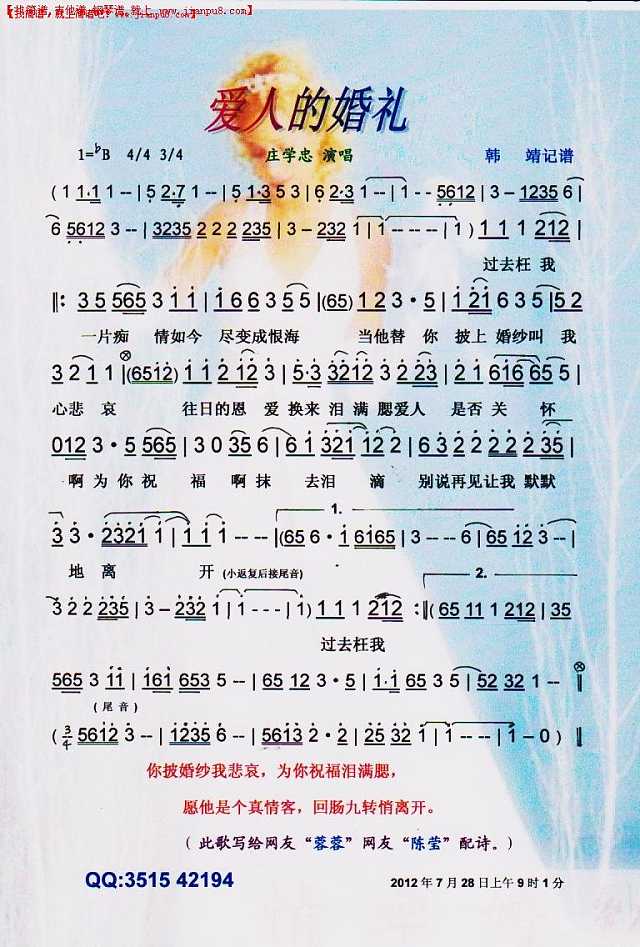 【找简谱,吉他谱,钢琴谱,就上 www.jianpu8.com】
爱人的婚礼
1=♭B 4/4 3/4 庄学忠 演唱 韩 靖记谱
( 1 1·1 1 -- | 5 2·7 1 -- | 5 1·3 5 3 | 6 2·3 1 -- | 1 -- 5612 | 3 - 1235 6 |
6 5612 3 -- | 3235 2 2 2 235 | 3 - 232 1 | 1 -- -- | 1 ) 1 1 1 212 |
过去枉 我
‖: 3 5 565 3 1 1 | 1 6 6 3 5 5 |(65) 1 2 3 · 5 | 1 21 6 3 5 |5 2
一片痴 情如今 尽变成恨海 当他替 你 披上 婚纱叫 我
3 2 1 1 |(6512) 1 1 2 12 3 | 5·3 3212 3 2 23 | 2 1 616 65 5 |
心悲 哀 往日的恩 爱 换来 泪 满 腮爱人 是否 关 怀
012 3 · 5 565 5 | 3 0 35 6 | 6 1 321 12 2 | 6 3 2 2 2 2 35 |
啊 为 你 祝 福 啊 抹 去泪 滴 别说再见让我 默默
1.
3 3 · 2321 1 | 1 1 1 -- | (65 6 · 1 6165 | 3 -- 6 | 65 12 3 -- |
地 离 开 (小返复后接尾音)
2.
3 2 2 235 | 3 - 232 1 | 1 - - - | 1 ) 1 1 1 212 :‖( 65 11 1 212 | 35
过去枉我
565 3 11 | 161 653 5 -- | 65 12 3 · 5 | 1·1 65 3 5 | 52 32 1 -- ‖
( 尾 音 )
( 3/4 5612 3 -- | 1235 6 -- | 5613 2 · 2 | 25 32 1 | 1 -- -- | 1 - 0 ) ‖
你披婚纱我悲哀，为你祝福泪满腮，
愿他是个真情客，回肠九转悄离开。
( 此歌写给网友“蓉蓉”网友“陈莹”配诗。)
QQ:3515 42194 2012 年 7 月 28 日上午 9 时 1 分